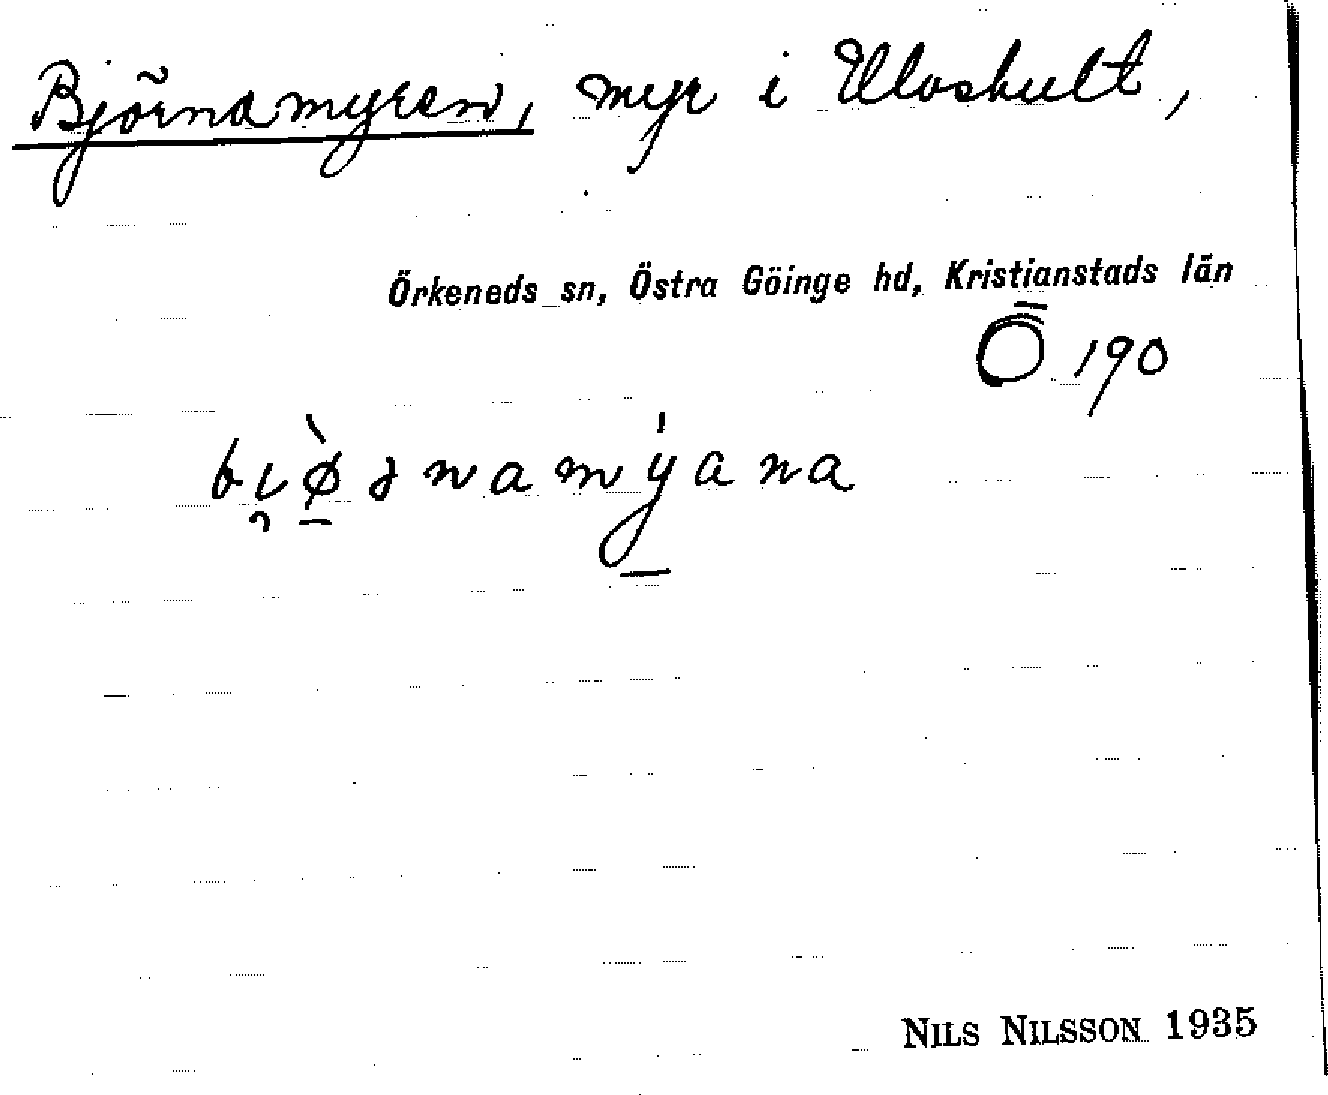 Björnamyren, myr i Uloshult,
Örkeneds sn, Östra Göinge hd, Kristianstads län
Ö 190
NILS NILSSON 1935